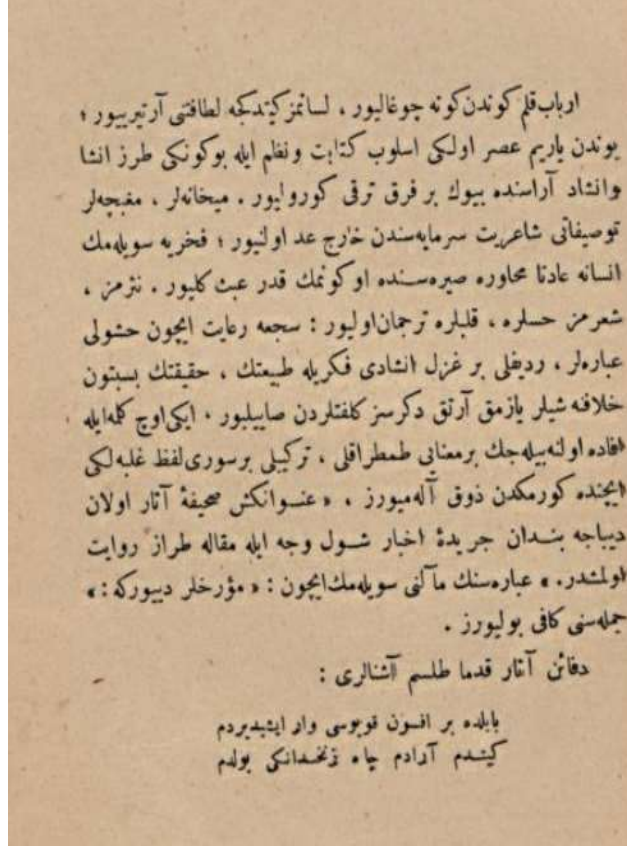 ارباب قلم کوندن کونه چوغالیور ، لسانمز کیتدکجه لطافتنی آرتیرییور ؛
بوندن یاریم عصر اولکی اسلوب کتابت ونظم ایله بوکونکی طرز انشا
وانشاد آراسنده بیوك بر فرق ترقی کورولیور . میخانه‌لر ، مغبچه‌لر
توصیفاتی شاعریت سرمایه‌سندن خارج عد اولنیور ؛ فخریه سویله‌مك
انسانه عادتا محاوره صیره‌سنده اوکونمك قدر عبث کلیور . نثرمز ،
شعرمز حسلره ، قلبلره ترجمان اولیور : سجعه رعایت ایچون حشولی
عباره‌لر ، ردیفلی بر غزل انشادی فکریله طبیعتك ، حقیقتك بسبتون
خلافنه شیلر یازمق آرتق دکرسز کلفتلردن صاییلیور . ایکی اوچ کلمه‌ایله
افاده اولنه‌بیله‌جك برمعنایی طمطراقلی ، ترکیبلی برسوری لفظ غلبه‌لکی
ایچنده کورمکدن ذوق آله‌میورز . « عنوانکش صحیفهٔ آثار اولان
دیباجه بندان جریدهٔ اخبار شول وجه ایله مقاله طراز روایت
اولمشدر . » عباره‌سنك مآلنی سویله‌مك ایچون : « مؤرخلر دییورکه : »
جمله‌سنی کافی بولیورز .
دفائن آثار قدما طلسم آشنالری :
بابلده بر افسون قویوسی وار ایشیدیردم
کیتدم آرادم چاه زنخدانکی بولدم